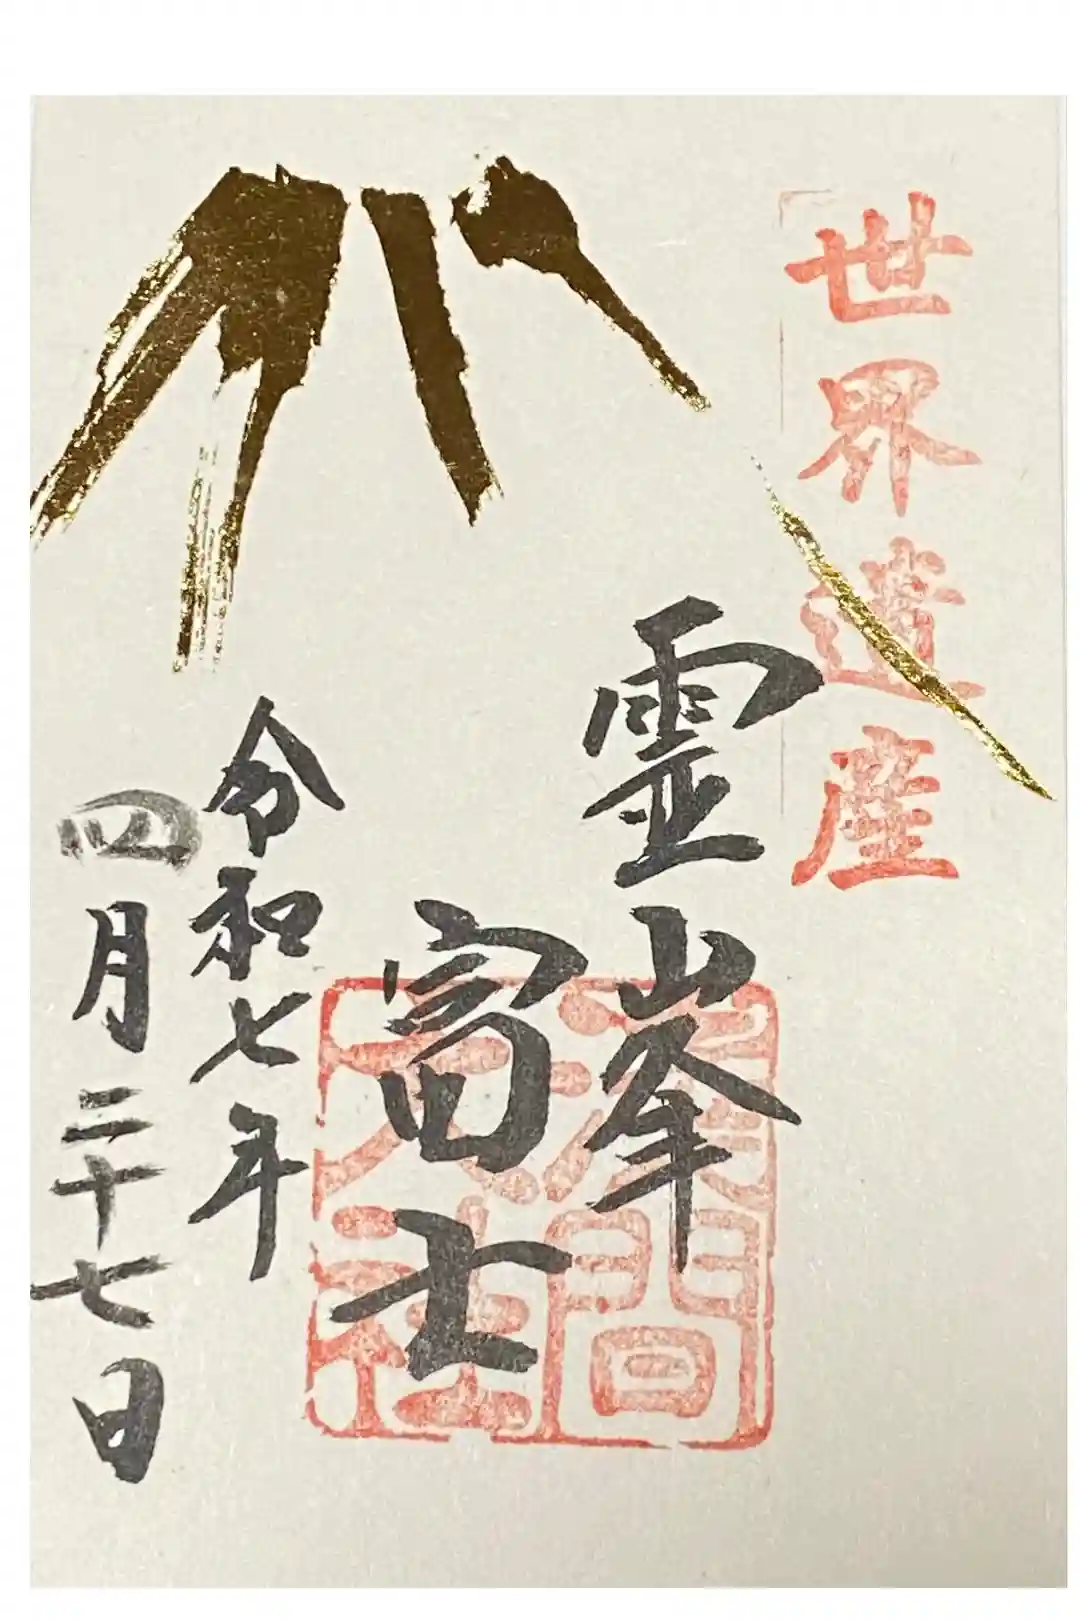 世界遺産
霊峯
富士
浅間
大社
令和七年
四月二十七日